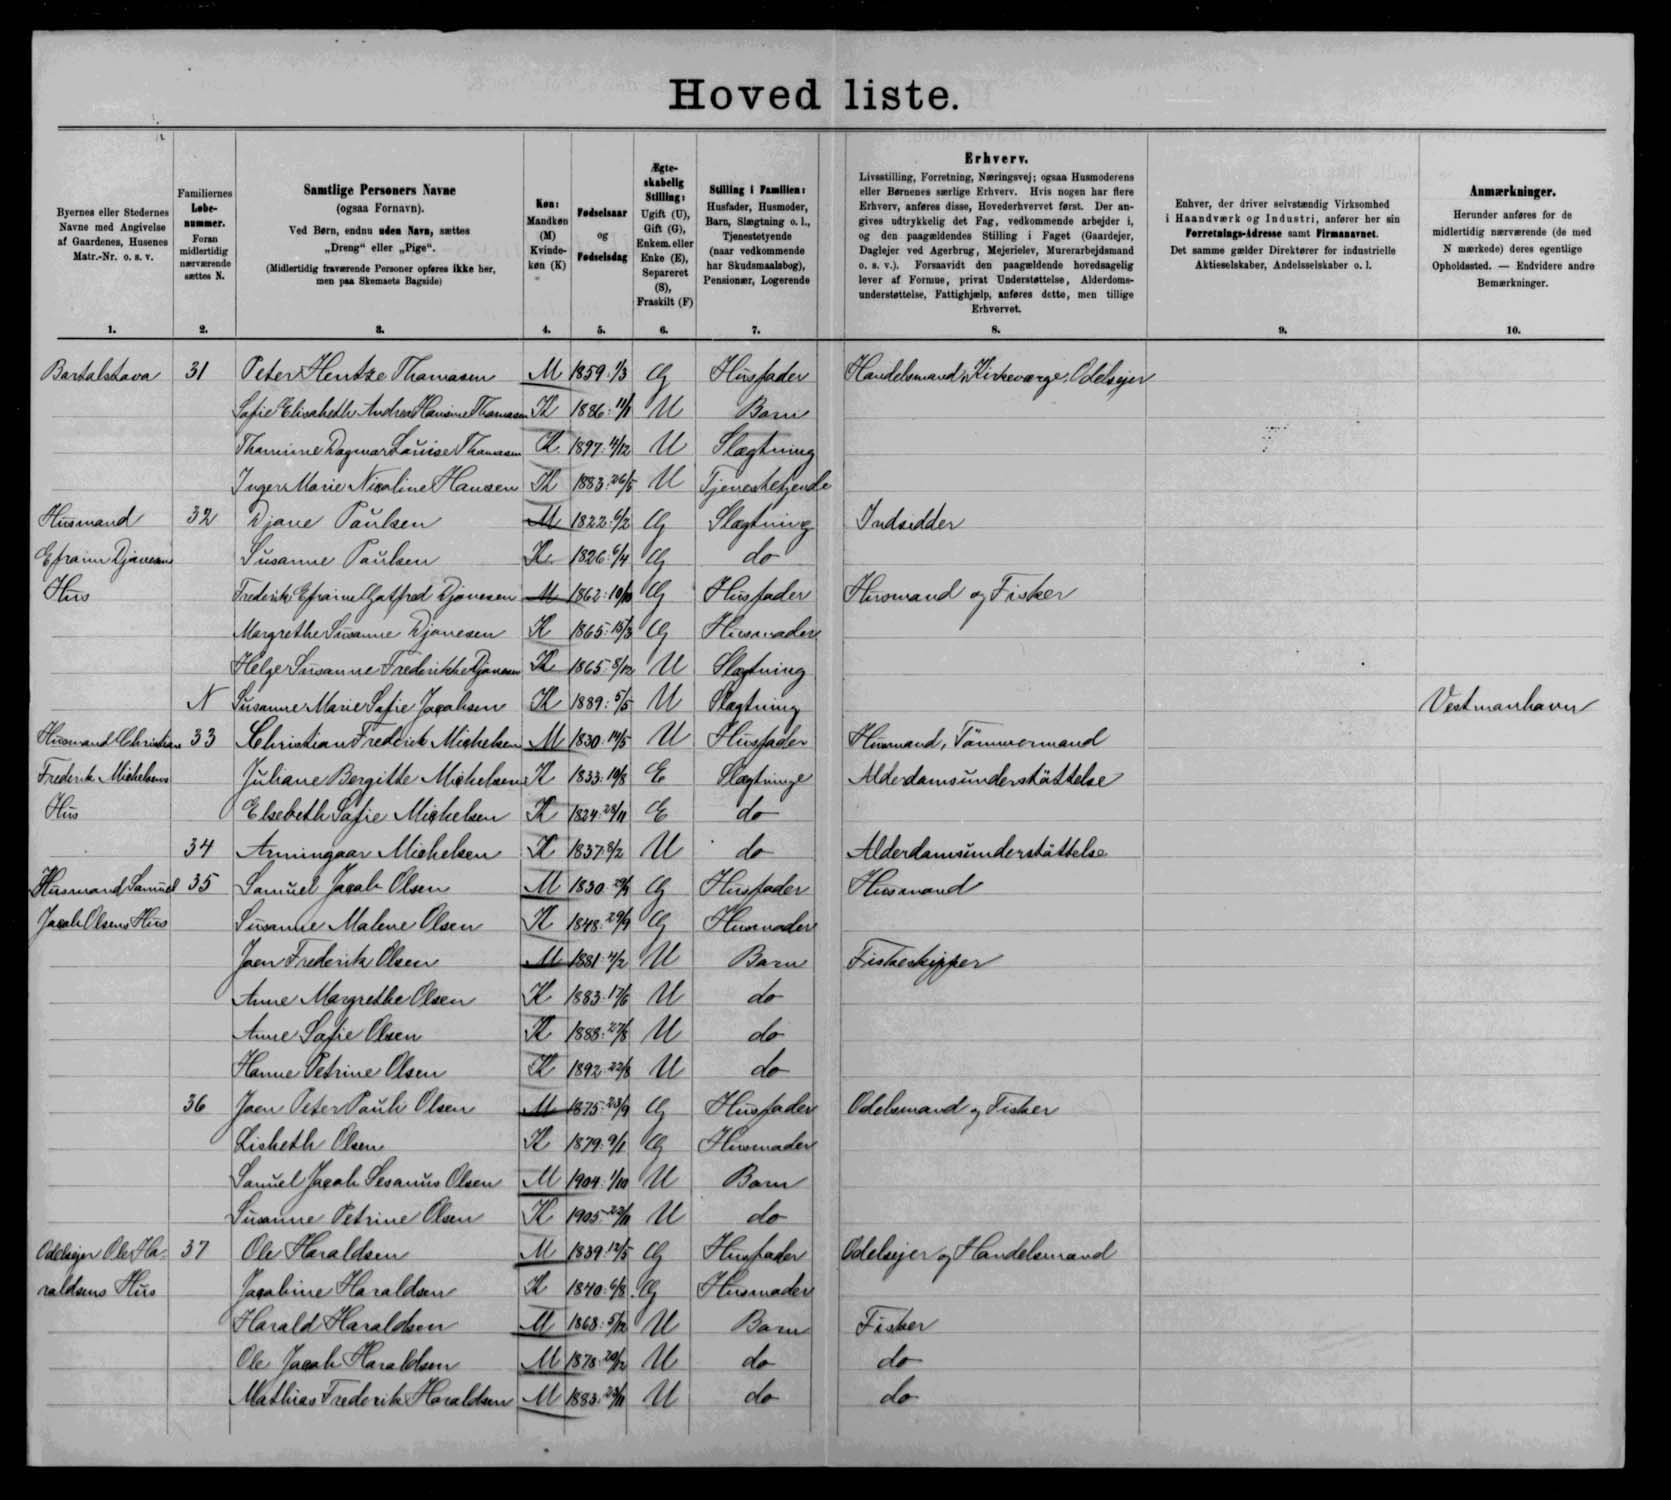 Hoved liste.
Byernes eller Stedernes Navne med Angivelse af Gaardenes, Husenes Matr.-Nr. o. s. v.
Familiernes Løbe-nummer. Foran midlertidig nærværende sættes N.
Samtlige Personers Navne (ogsaa Fornavn). Ved Børn, endnu uden Navn, sættes „Dreng“ eller „Pige“. (Midlertidig fraværende Personer opføres ikke her, men paa Skemaets Bagside)
Køn: Mandkøn (M) Kvinde-køn (K)
Fødselsaar og Fødselsdag
Ægte-skabelig Stilling: Ugift (U), Gift (G), Enkem. eller Enke (E), Separeret (S), Fraskilt (F)
Stilling i Familien: Husfader, Husmoder, Barn, Slægtning o. l., Tjenestetyende (naar vedkommende har Skudsmaalsbog), Pensionær, Logerende
Erhverv. Livsstilling, Forretning, Næringsvej; ogsaa Husmoderens eller Børnenes særlige Erhverv. Hvis nogen har flere Erhverv, anføres disse, Hovederhvervet først. Der an-gives udtrykkelig det Fag, vedkommende arbejder i, og den paagældendes Stilling i Faget (Gaardejer, Daglejer ved Agerbrug, Mejerielev, Murerarbejdsmand o. s. v.). Forsaavidt den paagældende hovedsagelig lever af Formue, privat Understøttelse, Alderdoms-understøttelse, Fattighjælp, anføres dette, men tillige Erhvervet.
Enhver, der driver selvstændig Virksomhed i Haandværk og Industri, anfører her sin Forretnings-Adresse samt Firmanavnet. Det samme gælder Direktører for industrielle Aktieselskaber, Andelsselskaber o. l.
Anmærkninger. Herunder anføres for de midlertidig nærværende (de med N mærkede) deres egentlige Opholdssted. — Endvidere andre Bemærkninger.
1. 2. 3. 4. 5. 6. 7. 8. 9. 10.
Bartalstava 31 Peter Hentze Thomasen M 1859 1/3 G Husfader Handelsmand, Kirkeværge, Odelsejer
Sofie Elisabeth Andrea Hansine Thomasen K 1886 U Barn
Thomine Dagmar Louise Thomasen K 1897 4/12 U Slægtning
Inger Marie Nicoline Hansen K 1883 26/5 U Tjenestetyende
Husmand 32 Djone Paulsen M 1822 6/2 G Slægtning Indsidder
Efraim Djonesens Susanne Paulsen K 1826 6/4 G do
Hus Frederik Efraim Gotfred Djonesen M 1862 10/10 G Husfader Husmand og Fisker
Margrethe Susanne Djonesen K 1865 15/3 G Husmoder
Helge Susanne Frederikke Djonesen K 1865 8/12 U Slægtning
N Susanne Marie Sofie Jacobsen K 1889 5/5 U Slægtning Vestmanhavn
Husmand Christian 33 Christian Frederik Michelsen M 1830 14/5 U Husfader Husmand, Tömmermand
Frederik Michelsens Juliane Bergitte Michelsen K 1833 19/8 E Slægtninge Alderdomsunderstöttelse
Hus Elsebeth Sofie Michelsen K 1824 28/11 E do
34 Armingaar Michelsen K 1837 8/2 U do Alderdomsunderstöttelse
Husmand Samuel 35 Samuel Jacob Olsen M 1830 G Husfader Husmand
Jacob Olsens Hus Susanne Malene Olsen K 1848 29/9 G Husmoder
Joen Frederik Olsen M 1881 4/2 U Barn Fiskeskipper
Anne Margrethe Olsen K 1883 17/6 U do
Anne Sofie Olsen K 1888 27/8 U do
Hanne Petrine Olsen K 1892 22/8 U do
36 Joen Peter Pauli Olsen M 1875 23/9 G Husfader Odelsmand og Fisker
Lisbeth Olsen K 1879 9/1 G Husmoder
Samuel Jacob Sesanus Olsen M 1904 1/10 U Barn
Susanne Petrine Olsen K 1905 22/11 U do
Odelsejer Ole Ha- 37 Ole Haraldsen M 1839 12/5 G Husfader Odelsejer og Handelsmand
raldsens Hus Jacobine Haraldsen K 1840 6/8 G Husmoder
Harald Haraldsen M 1868 5/12 U Barn Fisker
Ole Jacob Haraldsen M 1878 20/2 U do do
Mathias Frederik Haraldsen M 1883 23/11 U do do